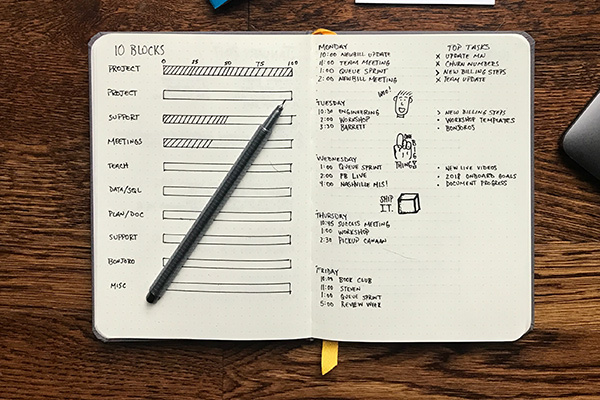 10 BLOCKS
0 25 50 75 100
PROJECT
PROJECT
SUPPORT
MEETINGS
TEACH
DATA/SQL
PLAN/DOC
SUPPORT
BONJORO
MISC
MONDAY
10:00 NEWBILL UPDATE
11:00 TEAM MEETING
1:00 QUEUE SPRINT
2:00 NEWBILL MEETING
TOP TASKS
x UPDATE MN
x CHURN NUMBERS
> NEW BILLING STEPS
x TEAM UPDATE
WOO!
TUESDAY
10:30 ENGINEERING
2:00 WORKSHOP
3:30 BARRETT
> NEW BILLING STEPS
• WORKSHOP TEMPLATES
• BONJOROS
THINGS
WEDNESDAY
1:00 QUEUE SPRINT
2:00 PB LIVE
4:00 NASHVILLE MLS!
• NEW LIVE VIDEOS
• 2018 ONBOARD GOALS
• DOCUMENT PROGRESS
SHIP
IT.
THURSDAY
10:45 SUCCESS MEETING
1:00 WORKSHOP
2:30 PICKUP CANAAN
FRIDAY
BOOK CLUB
11:00 STEVEN
1:00 QUEUE SPRINT
5:00 REVIEW WEEK